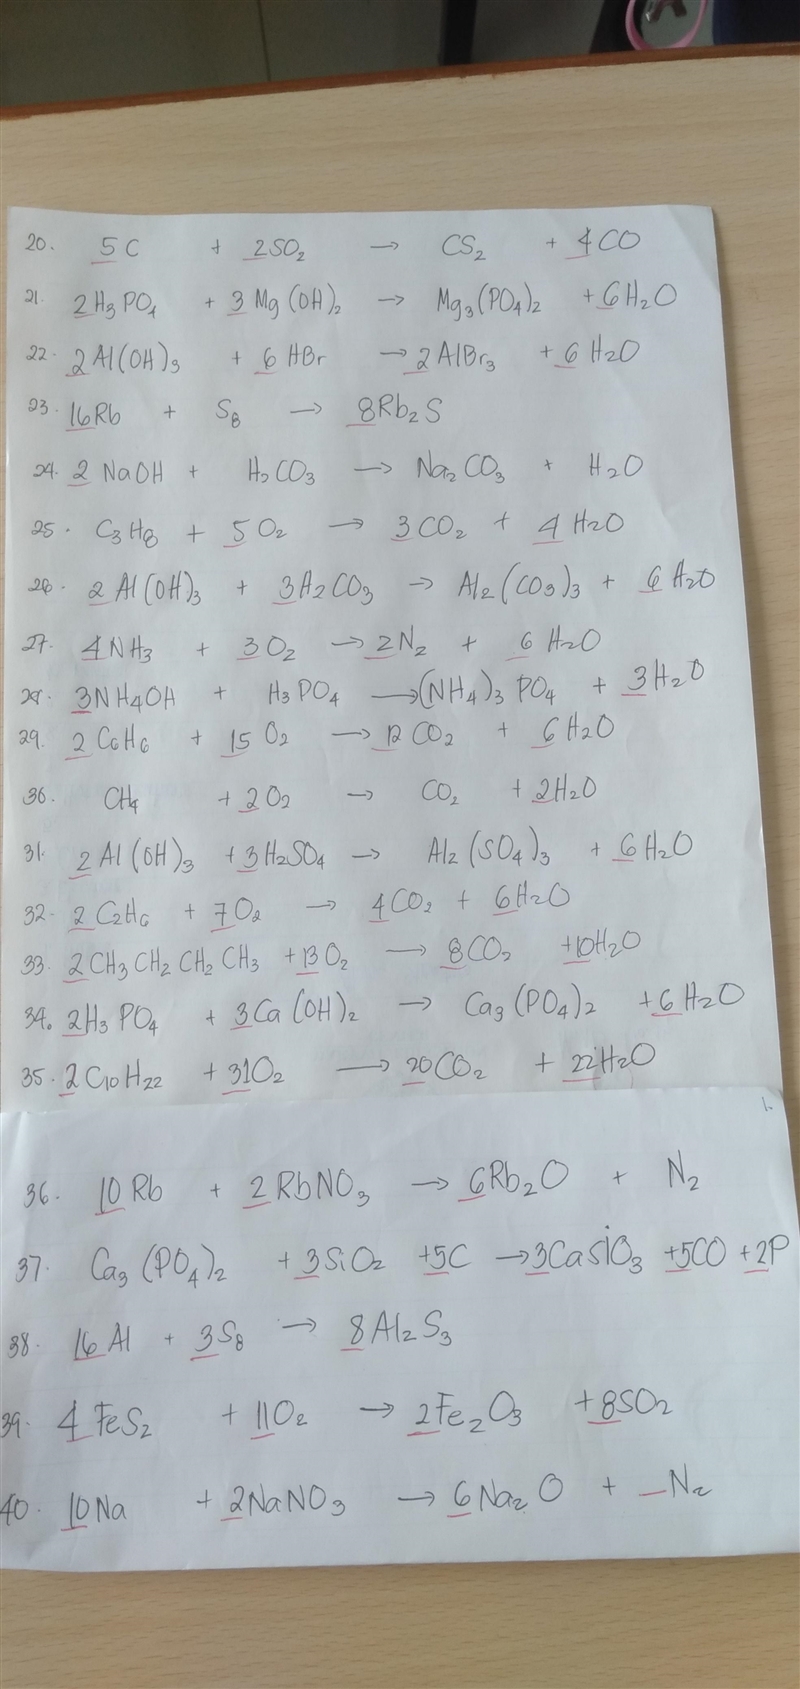 20. 5C + 2SO₂ → CS₂ + 4CO
21. 2H₃PO₄ + 3Mg(OH)₂ → Mg₃(PO₄)₂ + 6H₂O
22. 2Al(OH)₃ + 6HBr → 2AlBr₃ + 6H₂O
23. 16Rb + S₈ → 8Rb₂S
24. 2NaOH + H₂CO₃ → Na₂CO₃ + H₂O
25. C₃H₈ + 5O₂ → 3CO₂ + 4H₂O
26. 2Al(OH)₃ + 3H₂CO₃ → Al₂(CO₃)₃ + 6H₂O
27. 4NH₃ + 3O₂ → 2N₂ + 6H₂O
28. 3NH₄OH + H₃PO₄ → (NH₄)₃PO₄ + 3H₂O
29. 2C₆H₆ + 15O₂ → 12CO₂ + 6H₂O
30. CH₄ + 2O₂ → CO₂ + 2H₂O
31. 2Al(OH)₃ + 3H₂SO₄ → Al₂(SO₄)₃ + 6H₂O
32. 2C₂H₆ + 7O₂ → 4CO₂ + 6H₂O
33. 2CH₃CH₂CH₂CH₃ + 13O₂ → 8CO₂ + 10H₂O
34. 2H₃PO₄ + 3Ca(OH)₂ → Ca₃(PO₄)₂ + 6H₂O
35. 2C₁₀H₂₂ + 31O₂ → 20CO₂ + 22H₂O
36. 10Rb + 2RbNO₃ → 6Rb₂O + N₂
37. Ca₃(PO₄)₂ + 3SiO₂ + 5C → 3CaSiO₃ + 5CO + 2P
38. 16Al + 3S₈ → 8Al₂S₃
39. 4FeS₂ + 11O₂ → 2Fe₂O₃ + 8SO₂
40. 10Na + 2NaNO₃ → 6Na₂O + _N₂